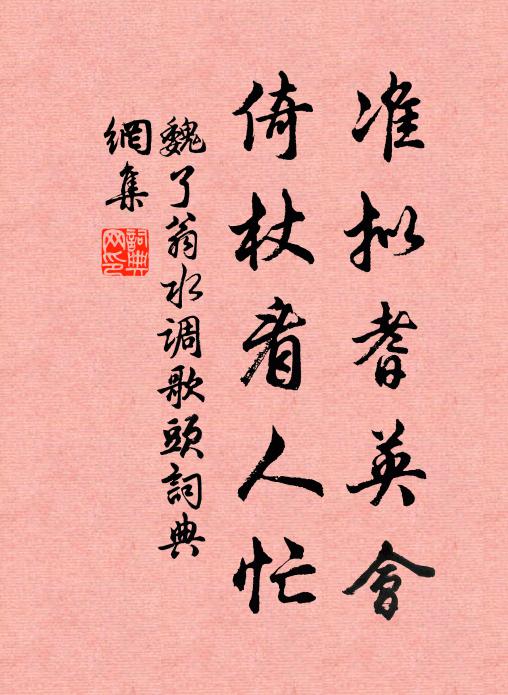 准拟耆英會
倚杖看人忙
魏了翁水调歌頭詞典
網集
詞典网印